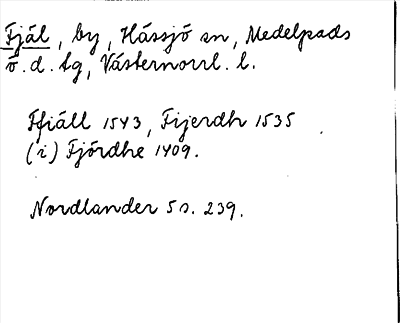 Fjäl, by, Hässjö sn, Medelpads
ö. d. tg, Västernorrl. l.
Ffiäll 1543, Fijerdh 1535
(i) Fjördhe 1409.
Nordlander 5 s. 239.